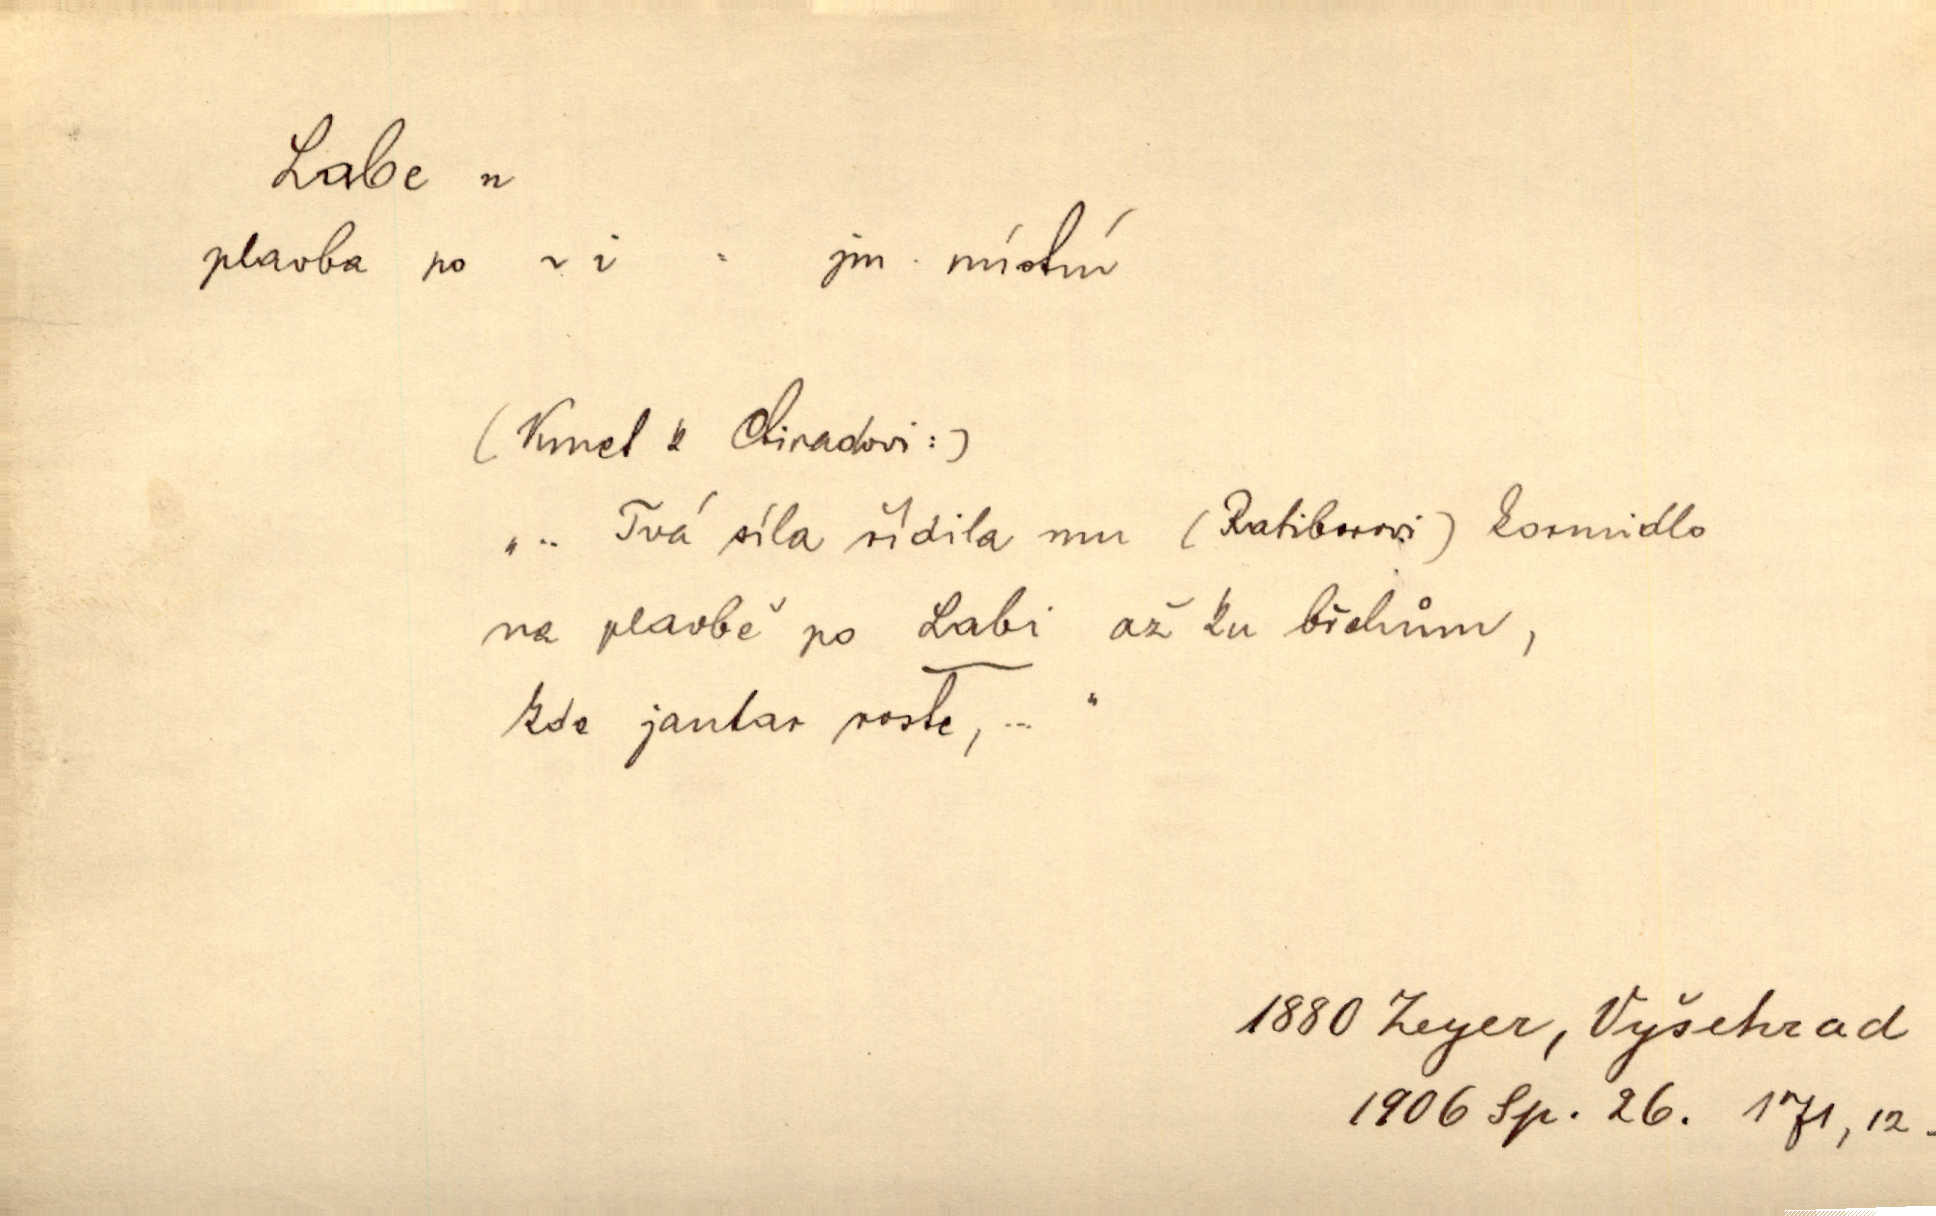 Labe n
plavba po ~ i . jm. místní
(Kmet k Ctiradovi:)
„.. Tvá síla řídila mu (Ratiborovi) kormidlo
na plavbě po Labi až ku břehům,
kde jantar roste, ... "
1880 Zeyer, Vyšehrad
1906 Sp. 26. 171, 12